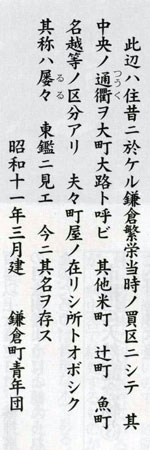 此辺ハ住昔ニ於ケル鎌倉繁栄当時ノ買区ニシテ 其
中央ノ通衢ヲ大町大路ト呼ビ 其他米町 辻町 魚町
つうく
名越等ノ区分アリ 夫々町屋ノ在リシ所トオボシク
其称ハ屡々 東鑑ニ見エ 今ニ其名ヲ存ス
るる
昭和十一年三月建 鎌倉町青年団